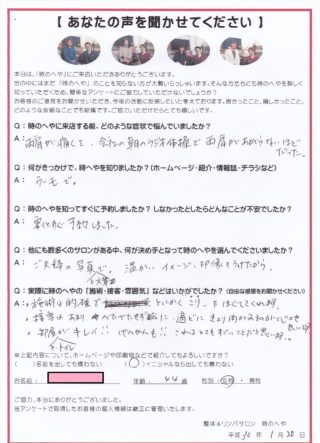 【 あなたの声を聞かせてください 】
本日は、「時のへや」にご来店いただきありがとうございます。
世の中にはまだ「時のへや」のことを知らない方が大勢いらっしゃいます。そんな方たちにも時のへやを詳しく
知っていただくため、簡単なアンケートにご協力していただけないでしょうか？
お客様のご意見をお聞かせいただき、今後の活動に反映したいと考えております。良かったこと、嬉しかったこと、
どのような些細なことでも結構です。ご協力いただけたらとても嬉しいです。
Q：時のへやに来店する前、どのような症状で悩んでいましたか？
A：両肩が痛くて、会社の朝のラジオ体操で両肩があがらないほど
だった。
Q：何がきっかけで、時へやを知りましたか？（ホームページ・紹介・情報誌・チラシなど）
A：ラーモで。
Q：時のへやを知ってすぐに予約しましたか？しなかったとしたらどんなことが不安でしたか？
A：すぐ予約しました。
Q：他にも数多くのサロンがある中、何が決め手となって時のへやを選んでくださいましたか？
A：ご夫婦の写真で、温かいイメージ、印象をうけたから。
Q：実際に時のへやの「施術・接客・雰囲気」などはいかがでしたか？（自由な感想をお聞かせください）
A：施術は的確で とにかくこりをほぐしてくれ
接客は
部屋がキレイ！！
※上記内容について、ホームページや印刷物などで紹介してもよろしいですか？
（　）名前を出しても構わない　（○）イニシャルなら出しても構わない
お名前：　年齢：44歳　性別：女性・男性
ご協力、本当にありがとうございました。
当アンケートで取得したお客様の個人情報は厳正に管理いたします。
整体＆リンパサロン　時のへや
平成30年1月20日